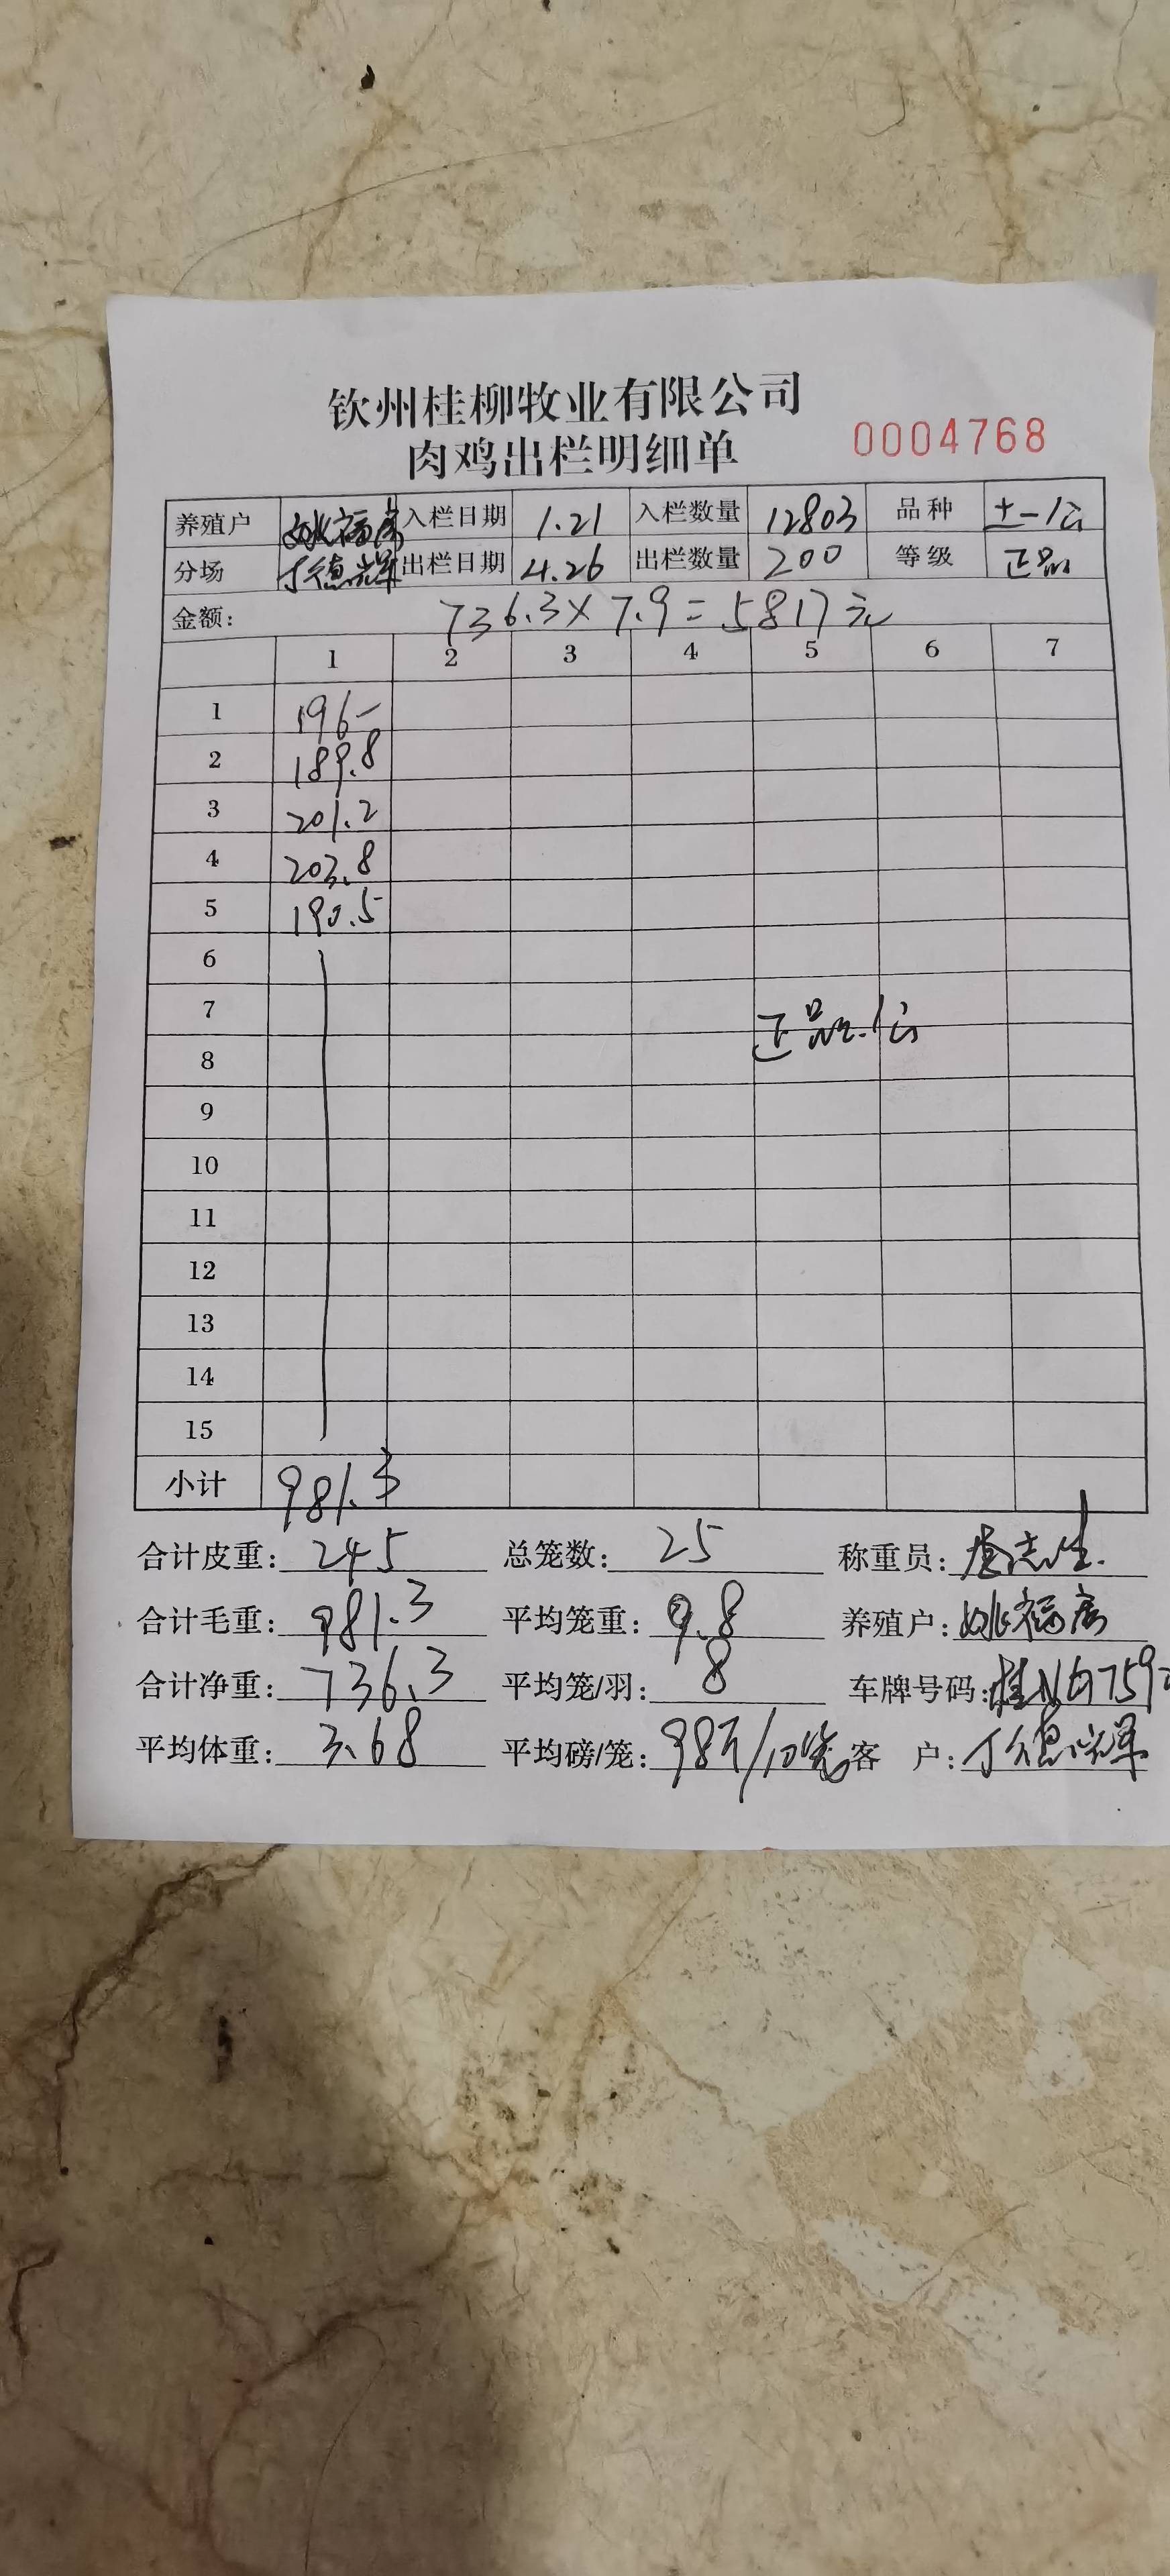 钦州桂柳牧业有限公司
肉鸡出栏明细单
0004768
养殖户 姚福 入栏日期 1.21 入栏数量 12803 品种 土一1公
分场 丁德辉 出栏日期 4.26 出栏数量 200 等级 正品
金额: 736.3×7.9=5817元
1 2 3 4 5 6 7
1 196-
2 189.8
3 201.2
4 203.8
5 190.5
6
7
正品 1公
8
9
10
11
12
13
14
15
小计 981.3
合计皮重: 245 总笼数: 25 称重员: 志生
合计毛重: 981.3 平均笼重: 9.8 养殖户: 姚福
合计净重: 736.3 平均笼/羽: 8 车牌号码: 桂N 759
平均体重: 3.68 平均磅/笼: 98斤/10笼 客 户: 丁德辉